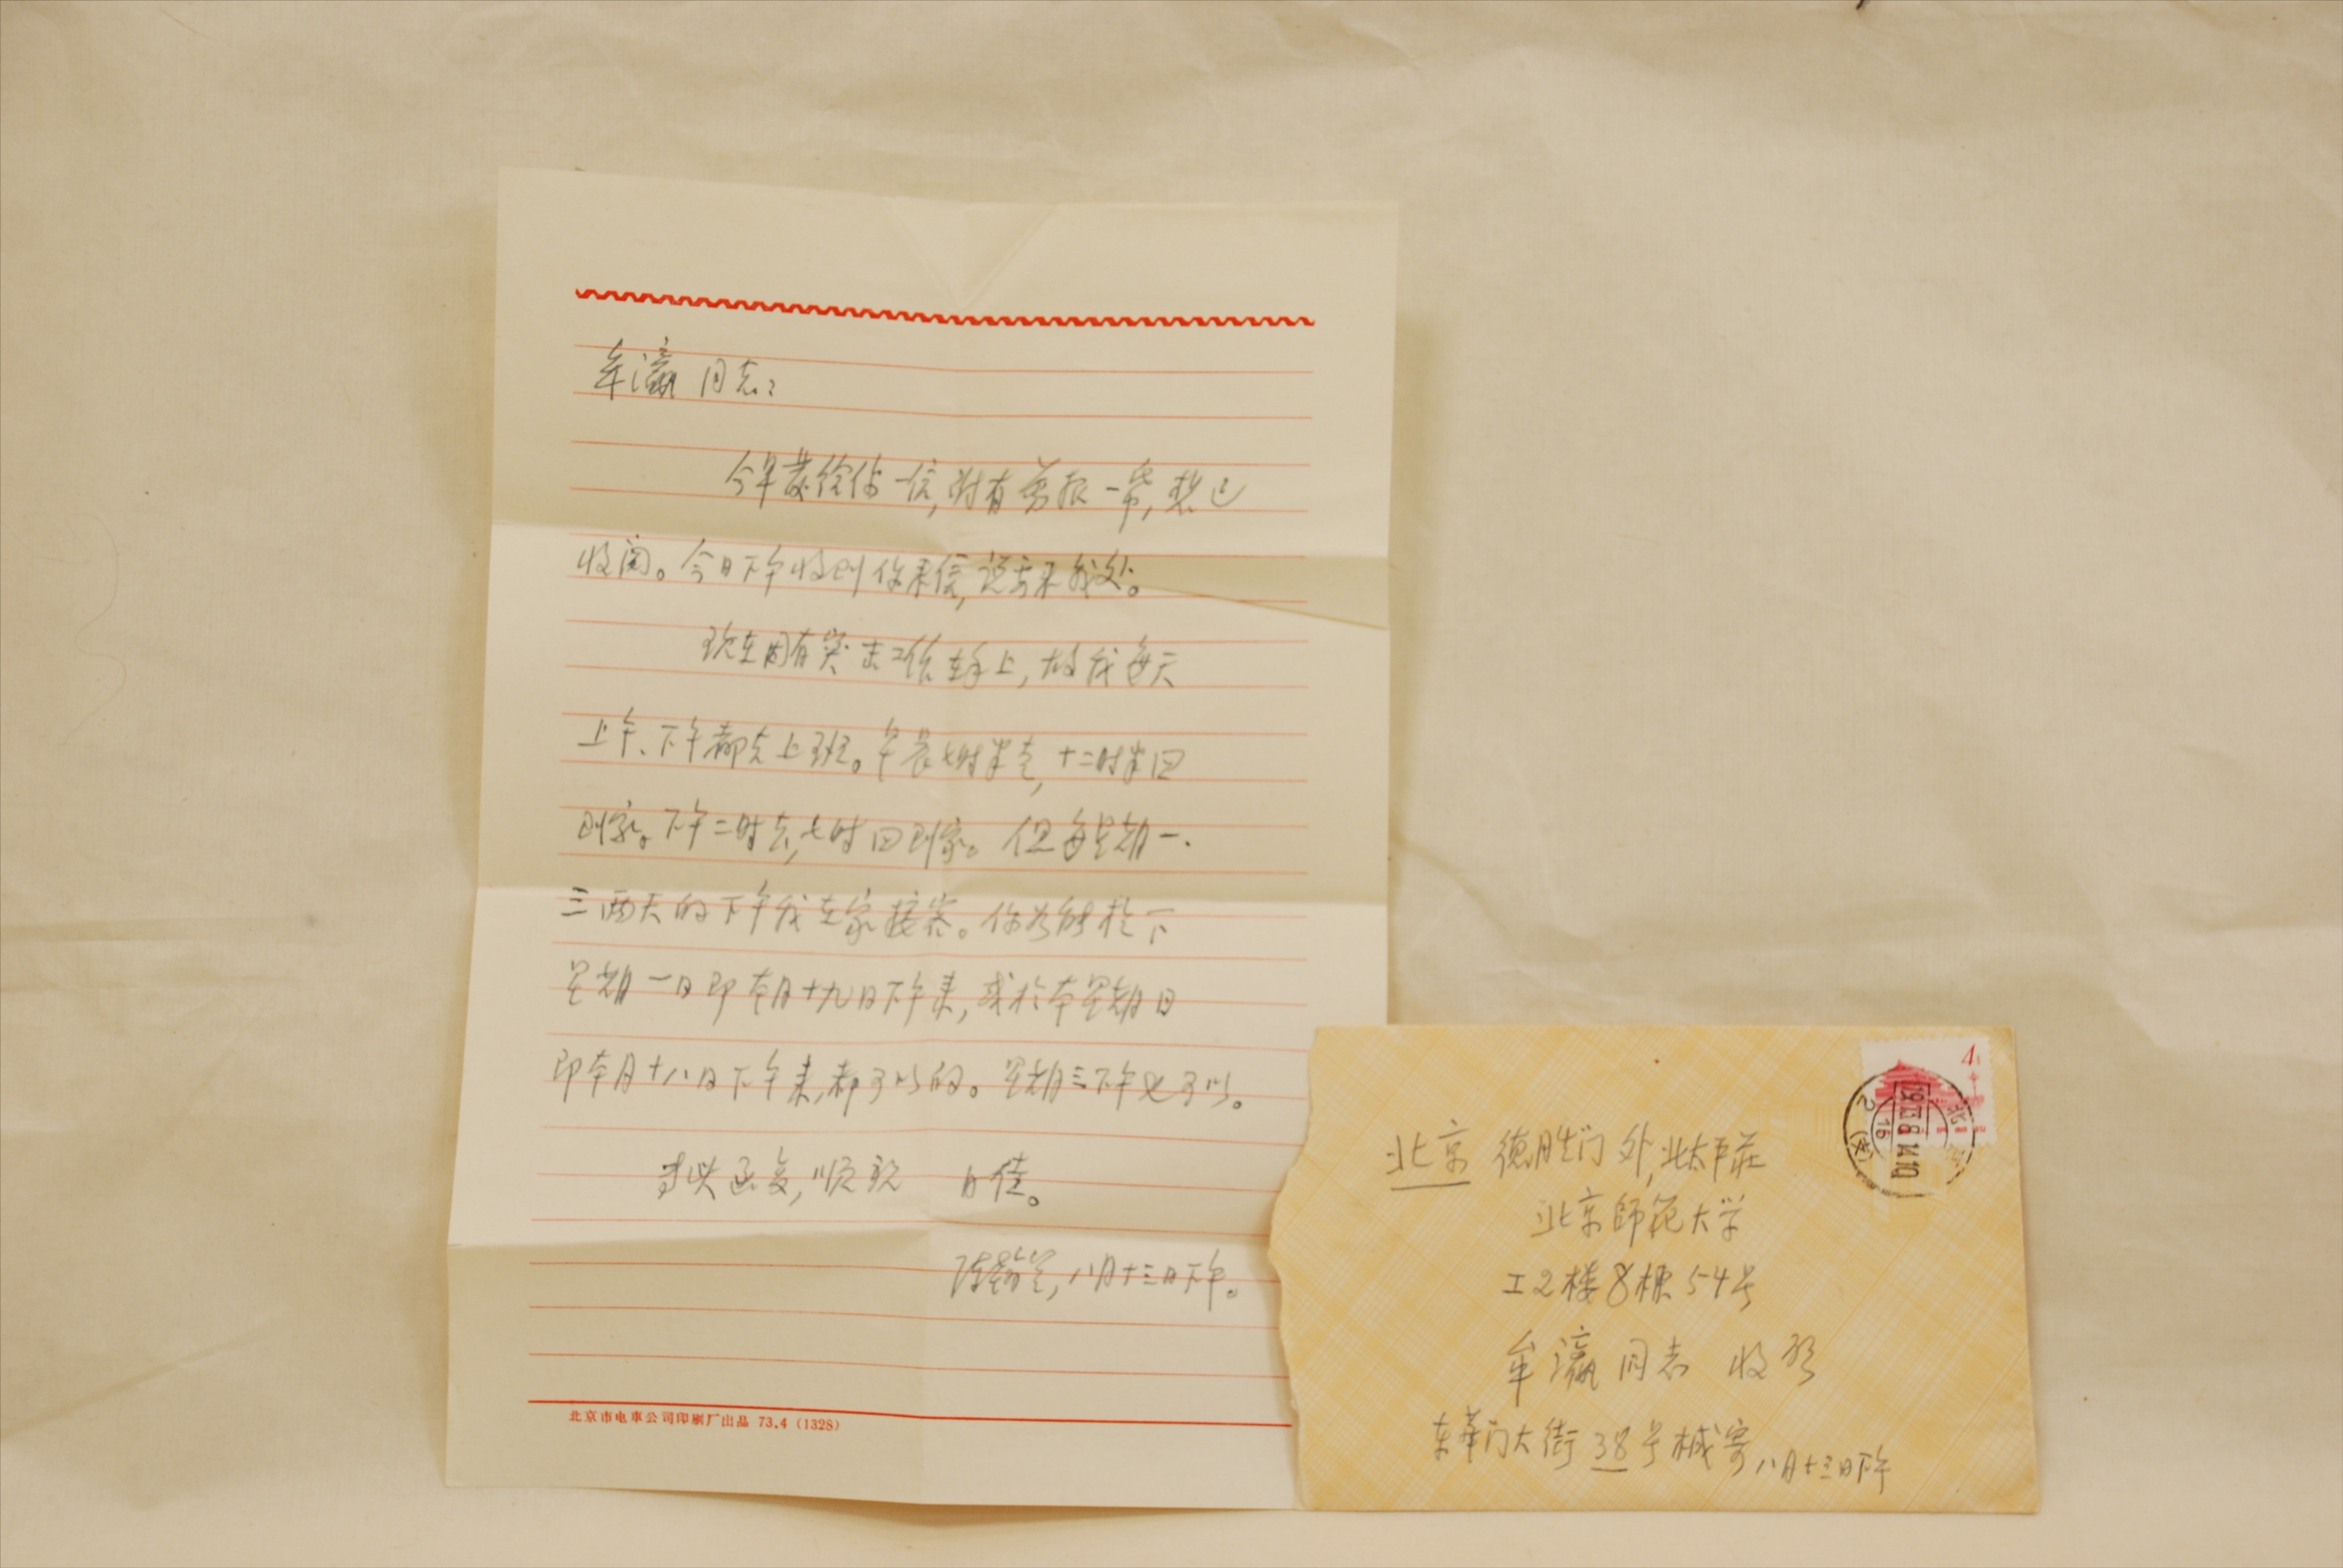 牟瀛同志:
今早发给你一信,附有剪报一帋,想已
收阅。今日下午收到你来信,说去来我处。
现在因有突击工作在手上,故我每天
上午、下午都去上班。早晨七时半走,十二时半回
到家。下午二时去,七时回到家。但每星期一、
三两天的下午我在家接客。你若能于下
星期一日即本月十九日下午来,或于本星期日
即本月十八日下午来,都可以的。星期三下午也可以。
专此函复,顺祝 日佳。
陈翰笙,八月十三日下午。
北京市电车公司印刷厂出品 73.4 (1328)
4
北京
1973.8.14.10
16
2 (支)
北京 德胜门外,北太平庄
北京師范大学
工2楼8栋54号
牟瀛同志 收启
东华门大街38号椷寄 八月十三日下午